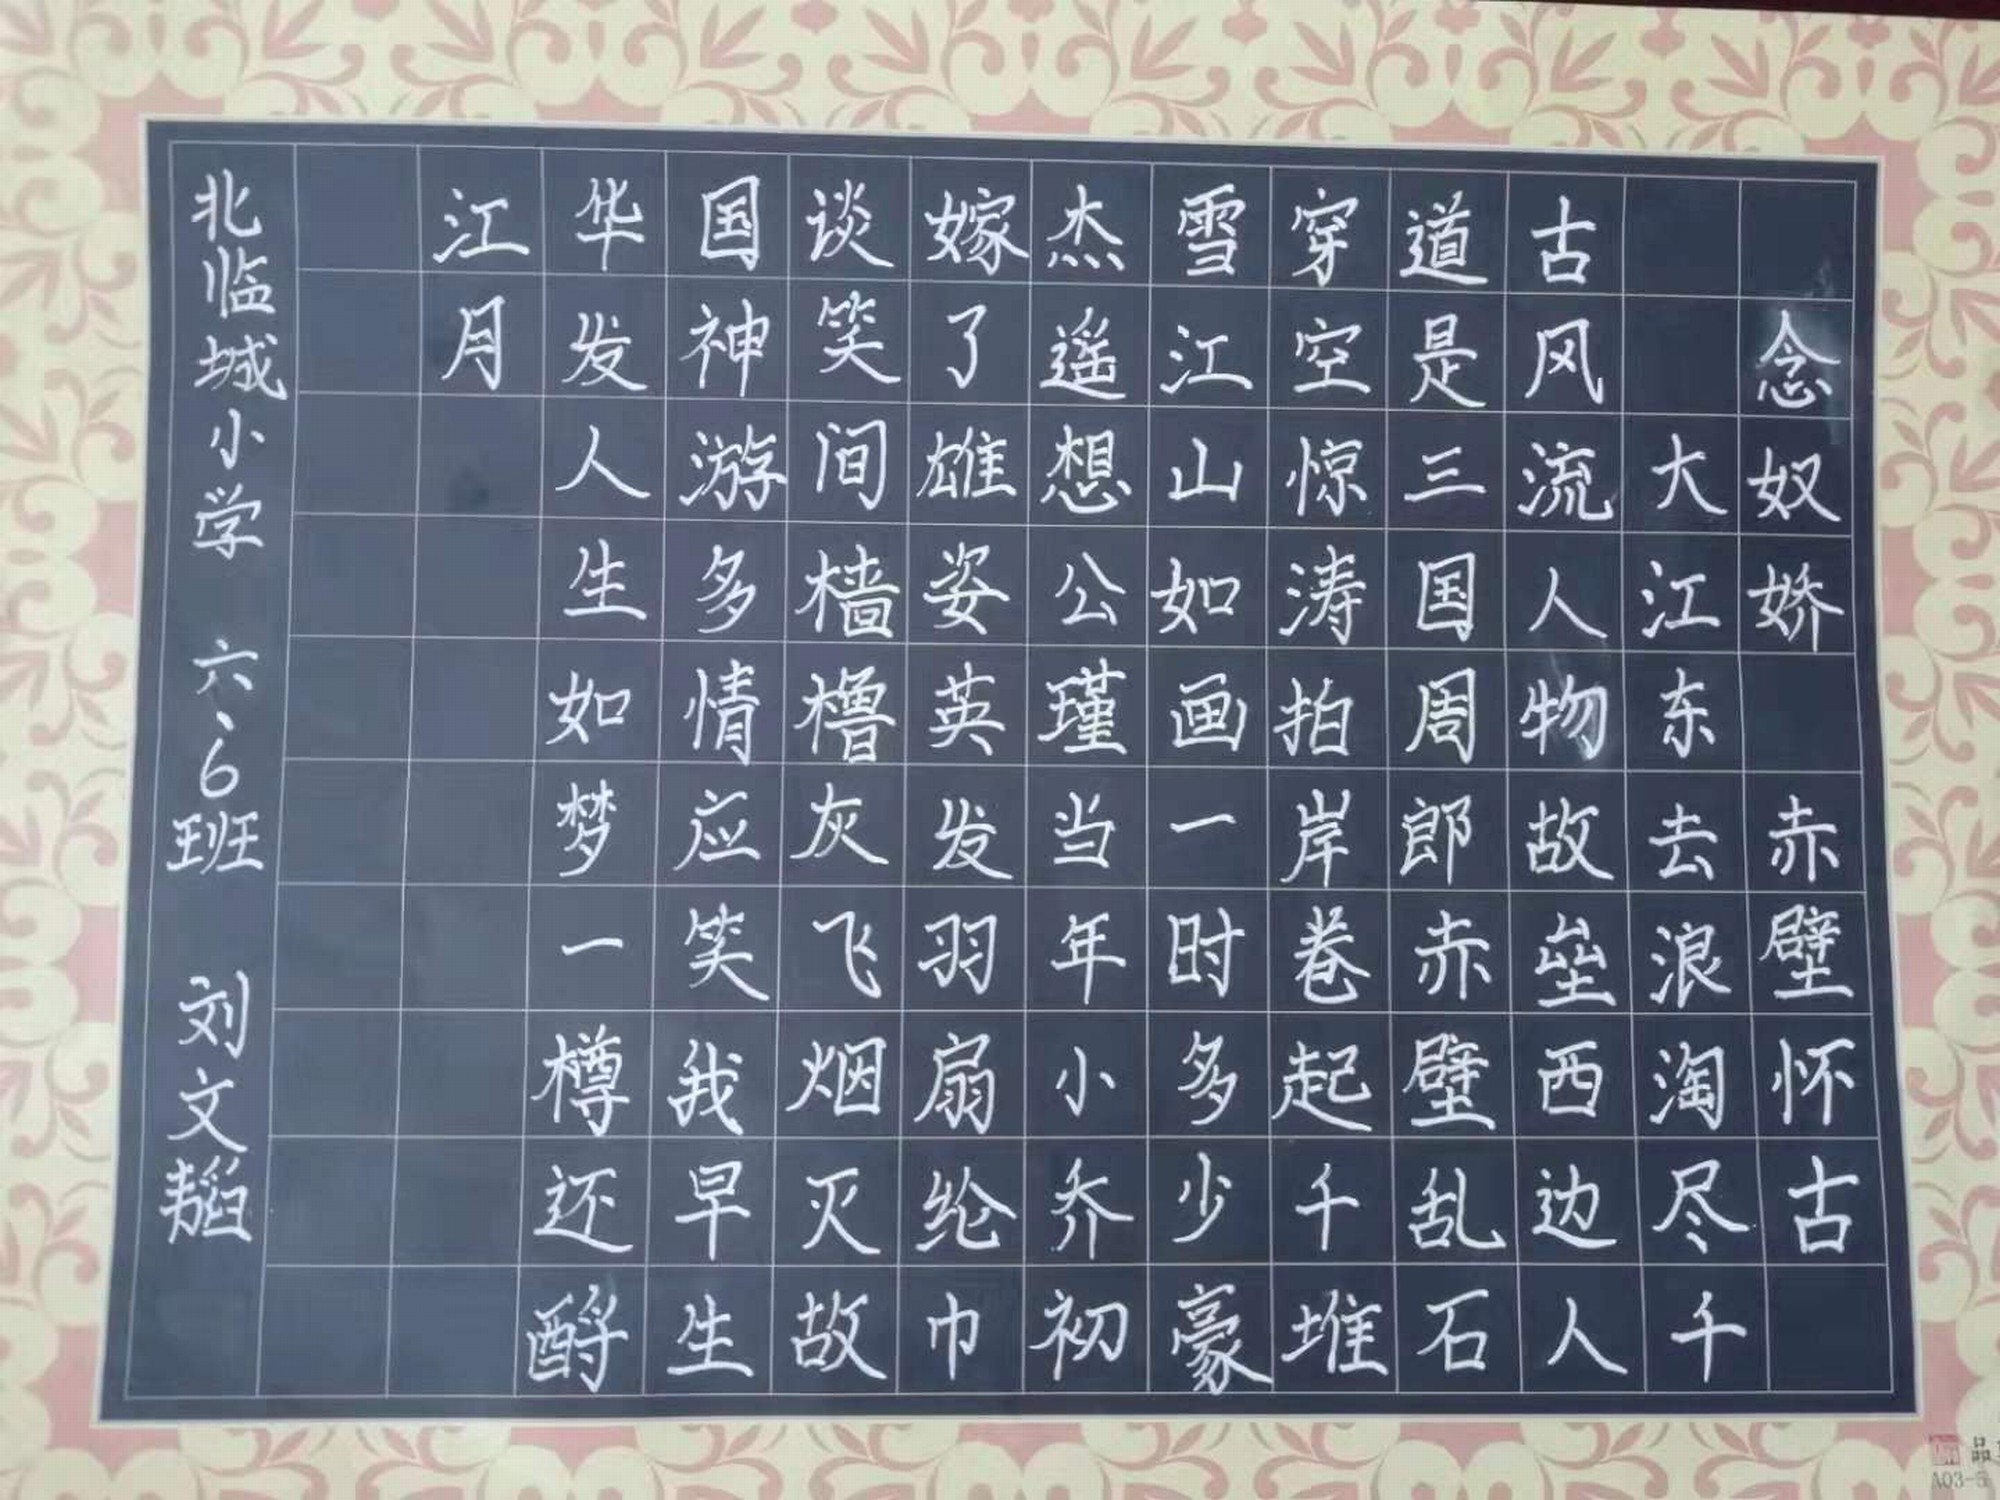 念奴娇 赤壁怀古
大江东去浪淘尽千
古风流人物故垒西边人
道是三国周郎赤壁乱石
穿空惊涛拍岸卷起千堆
雪江山如画一时多少豪
杰遥想公瑾当年小乔初
嫁了雄姿英发羽扇纶巾
谈笑间樯橹灰飞烟灭故
国神游多情应笑我早生
华发人生如梦一樽还酹
江月
北临城小学 六、6班 刘文韬
品
A03-5